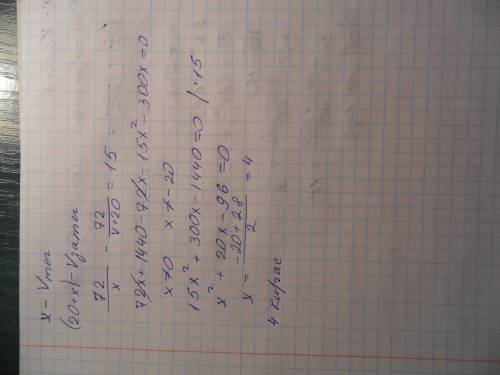 x - Vтеч
(20+x) = Vзатеч
72/x - 72/x+20 = 15
72x+1440-72x-15x²-300x=0
x≠0 x≠-20
15x²+300x-1440=0 /:15
x²+20x-96=0
x = -20+28/2 = 4
4 км/час